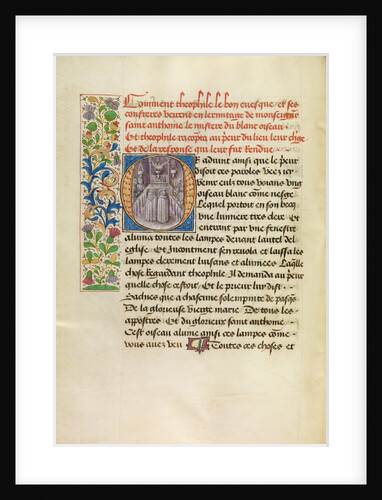 Comment theophile le bon evesque et ses
confreres veirent en lermitage de monseigneur
saint anthoine le mistere du blanc oiseau
Et theophile racompta au prieur du lieu leur chose
Et de la response qui leur fut Rendue
Or advint ainsi que le prieur
disoit ces paroles vecz cy
venir culz tous voians ung
oiseau blanc come neige
Lequel portoit en son becq
une lumiere tres clere Et
entrant par une fenestre
aluma toutes les lampes devant lautel de
leglise Et Incontinent senvola et laissa les
lampes clerement luisans et alumees Laqlle
chose Regardant theophile Il demanda au prieur
quelle chose cestoit Et le prieur lui dist
Sachies que a chascune solempnite de pasqs
De la glorieuse vierge marie De tous les
appostres Et du glorieux saint anthoine
Cest oiseau alume ainsi ces lampes come
vous avez veu Toutes ces choses et